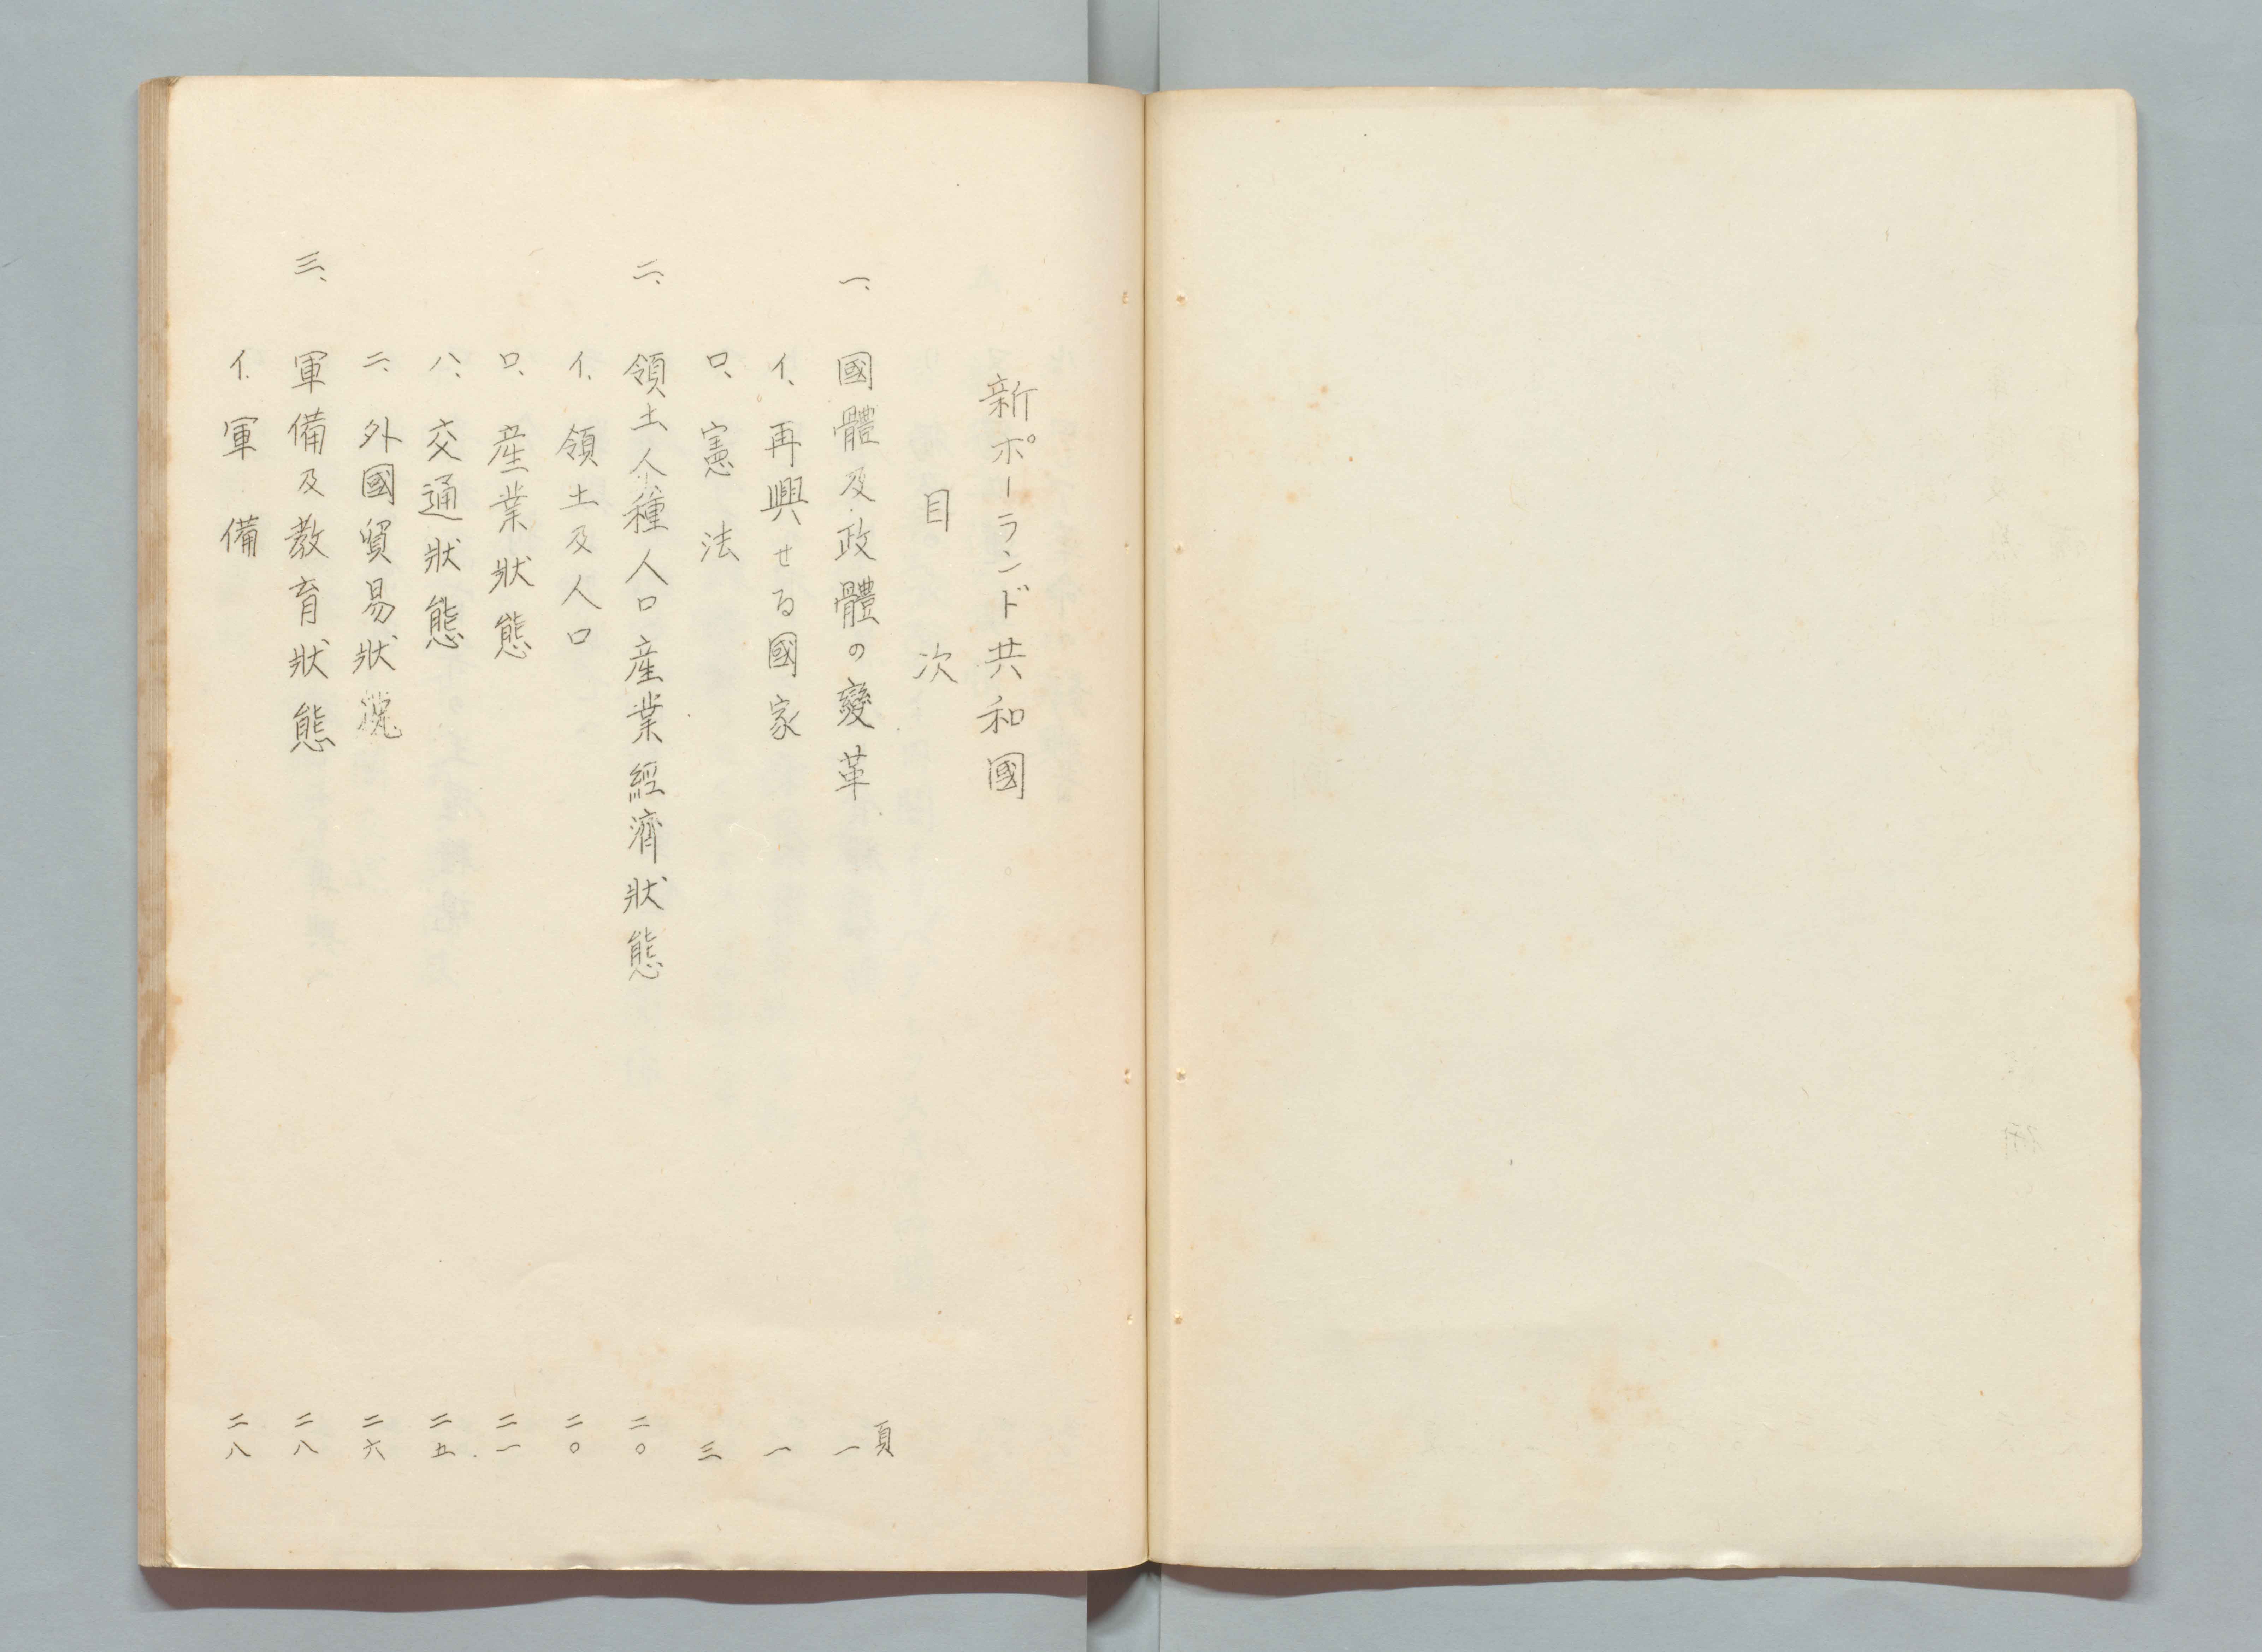 新ポーランド共和國
目次
頁
一、國體及政體の變革 一
イ、再興せる國家 一
ロ、憲法 三
二、領土人種人口産業經濟狀態 二〇
イ、領土及人口 二〇
ロ、産業狀態 二一
ハ、交通狀態 二五
ニ、外國貿易狀況 二六
三、軍備及教育狀態 二八
イ.軍備 二八